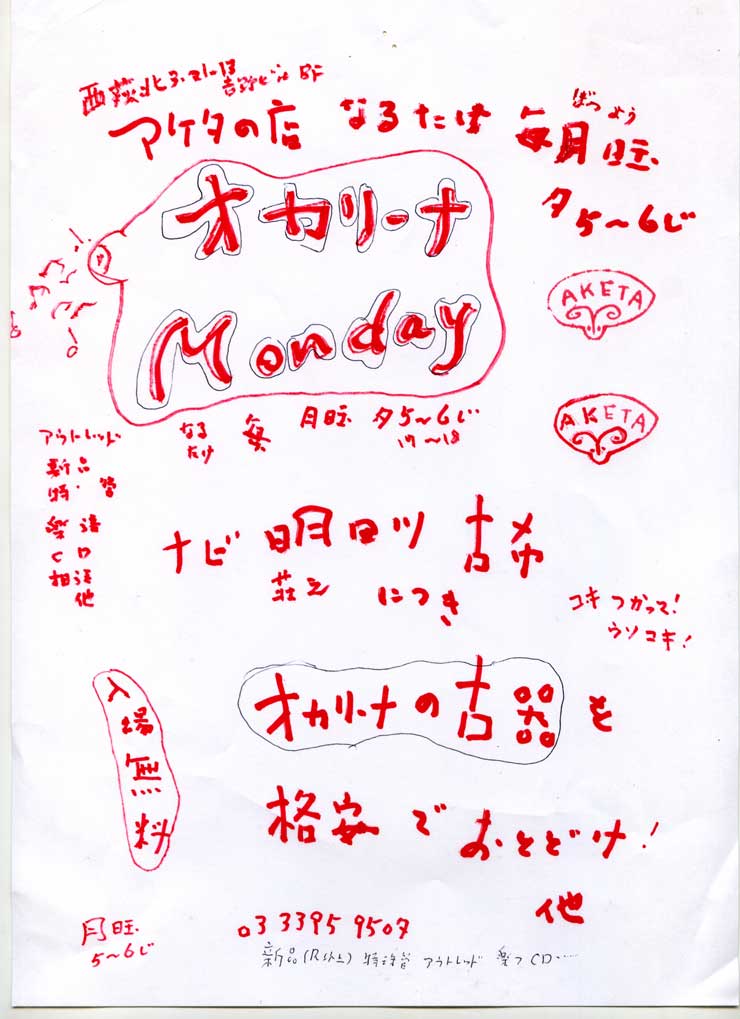 西荻北3-21-13
吉野ビル BF
アケタの店 なるたけ 毎月旺
げつ よう
夕5〜6じ
オカリーナ
Monday
AKETA
AKETA
なるたけ 毎 月旺 夕5〜6じ
17〜18
アウトレット
新品
特・管
楽譜
CD
相談
他
ナビ 明田川 古希
荘之 につき
コキ つかって!
ウソコキ!
オカリーナの古器を
入場無料
格安で おとどけ!
他
月旺
5〜6じ
03 3395 9507
新品 特注管 アウトレット CD……